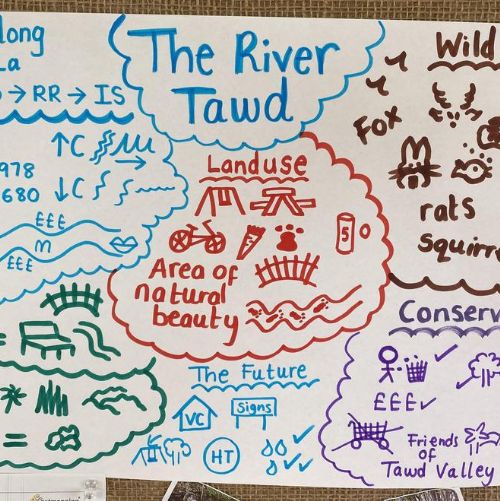 The River
Tawd
long
La
→ RR → IS
↑C
978
680 ↓C
£££
m
£££
Landuse
5 0
Area of
natural
beauty
Wild
Fox
rats
Squirr
Conserv
£££✓
Friends of
Tawd Valley
The Future
VC
Signs
HT